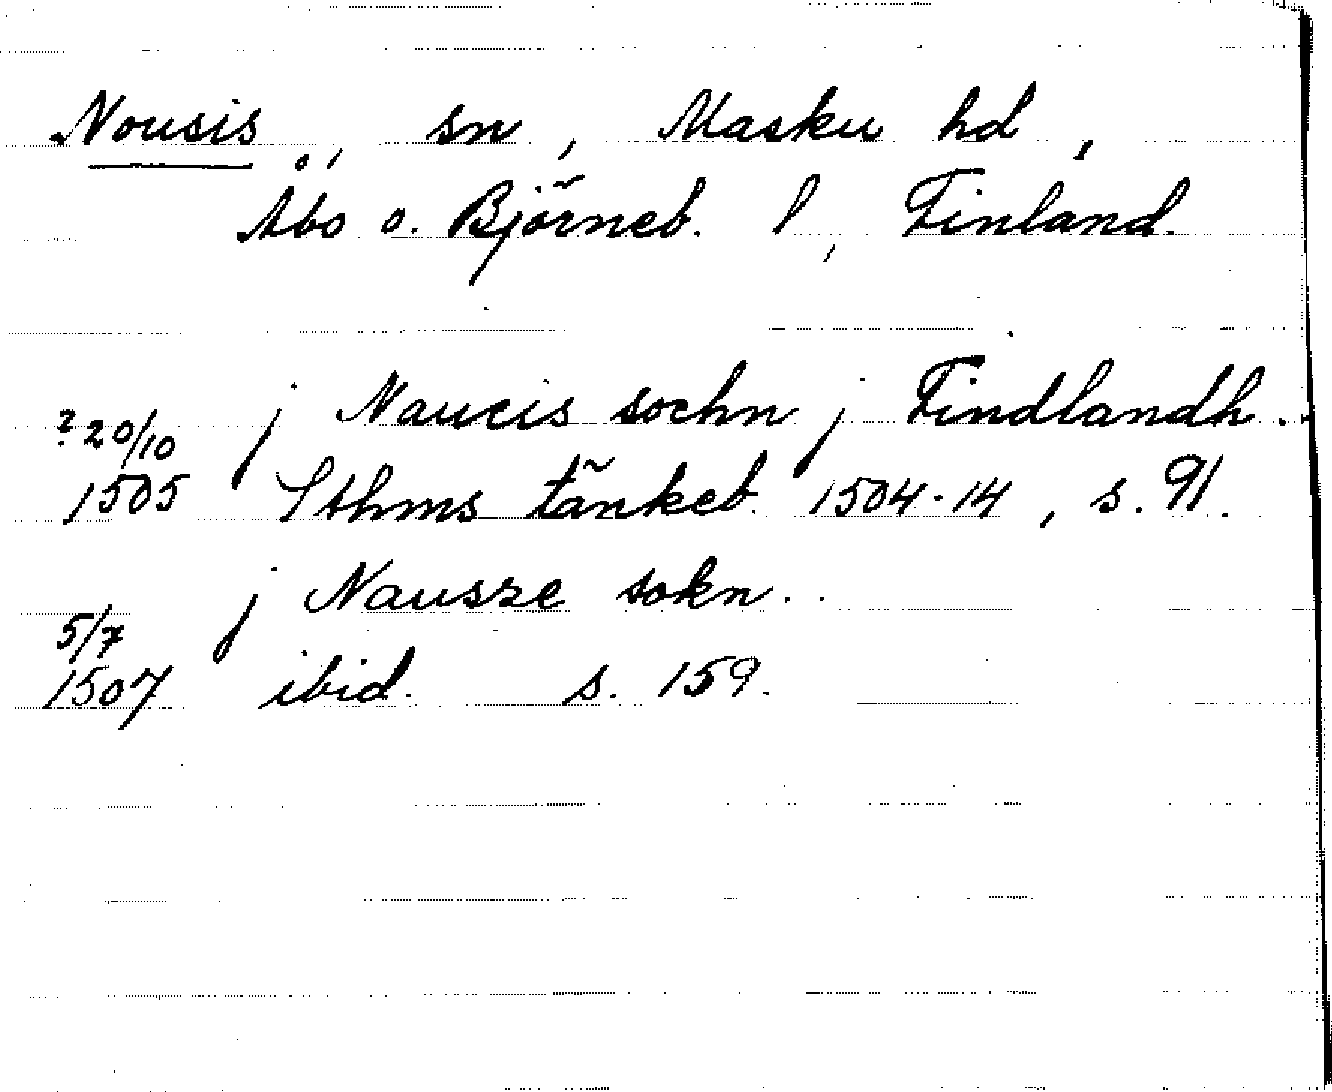 Nousis, sn, Masku hd,
Åbo o. Björneb. l, Finland.
? 20/10 j Naucis sochn j Findlandh.
1505 Sthms tänkeb. 1504-14, s. 91.
5/7 j Nausze sokn.
1507 ibid. s. 159.